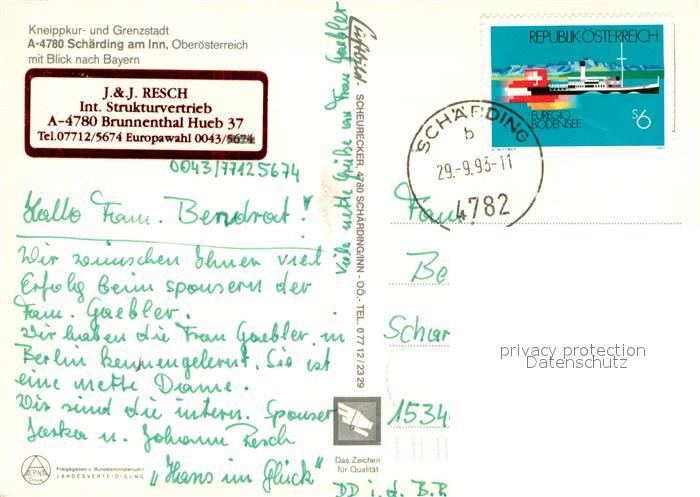 Kneippkur- und Grenzstadt
A-4780 Schärding am Inn, Oberösterreich
mit Blick nach Bayern
J.&J. RESCH
Int. Strukturvertrieb
A-4780 Brunnenthal Hueb 37
Tel.07712/5674 Europawahl 0043/5674
0043/77125674
Hallo Fam. Bendrat!
Wir wünschen Ihnen viel
Erfolg beim sponsern der
Fam. Gaebler.
Wir haben die Frau Gaebler in
Berlin kennengelernt. Sie ist
eine nette Dame.
Wir sind die intern. Sponser
u. Johann Resch
„Hans im Glück"
Freigegeben v. Bundesministerium f.
LANDESVERTEIDIGUNG
Viele nette Grüße an Frau Gaebler
Luftbild - SCHEURECKER, 4780 SCHÄRDING/INN - OÖ.- TEL. 077 12/23 29
Das Zeichen
für Qualität
REPUBLIK ÖSTERREICH
EUREGIO
BODENSEE
S6
1993
SCHÄRDING
b
29.-9.93-11
4782
Fam.
Be
Schar
1534
DD i. d. B.R
privacy protection
Datenschutz